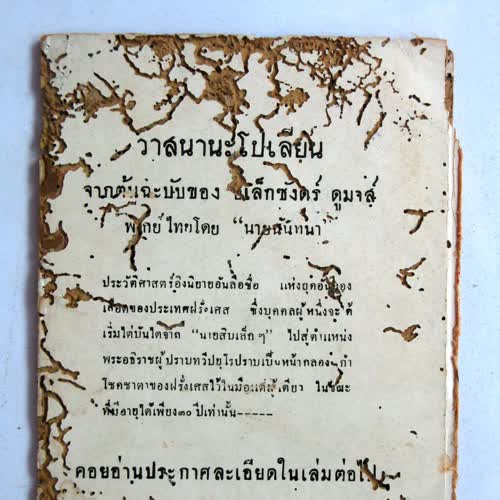 วาสนานะโปเลียน
จากต้นฉะบับของ อเล็กซังดร์ ดูมจส์
พากย์ไทยโดย "นายฉันทนา"
ประวัติศาสตร์อิงนิยายอันลือชื่อ แห่งยุคอันนอง
เลือดของประเทศฝรั่งเศส ซึ่งบุคคลผู้หนึ่งจะได้
เริ่มไต่บันไดจาก "นายสิบเล็กๆ" ไปสู่ตำแหน่ง
พระอธิราชผู้ปราบทวีปยุโรปราบเป็นหน้ากลอง กำ
โชคชาตาของฝรั่งเศสไว้ในมือแต่ผู้เดียว ในขณะ
ที่มีอายุได้เพียง ๓๐ ปีเท่านั้น-----
คอยอ่านประกาศละเอียดในเล่มต่อไป